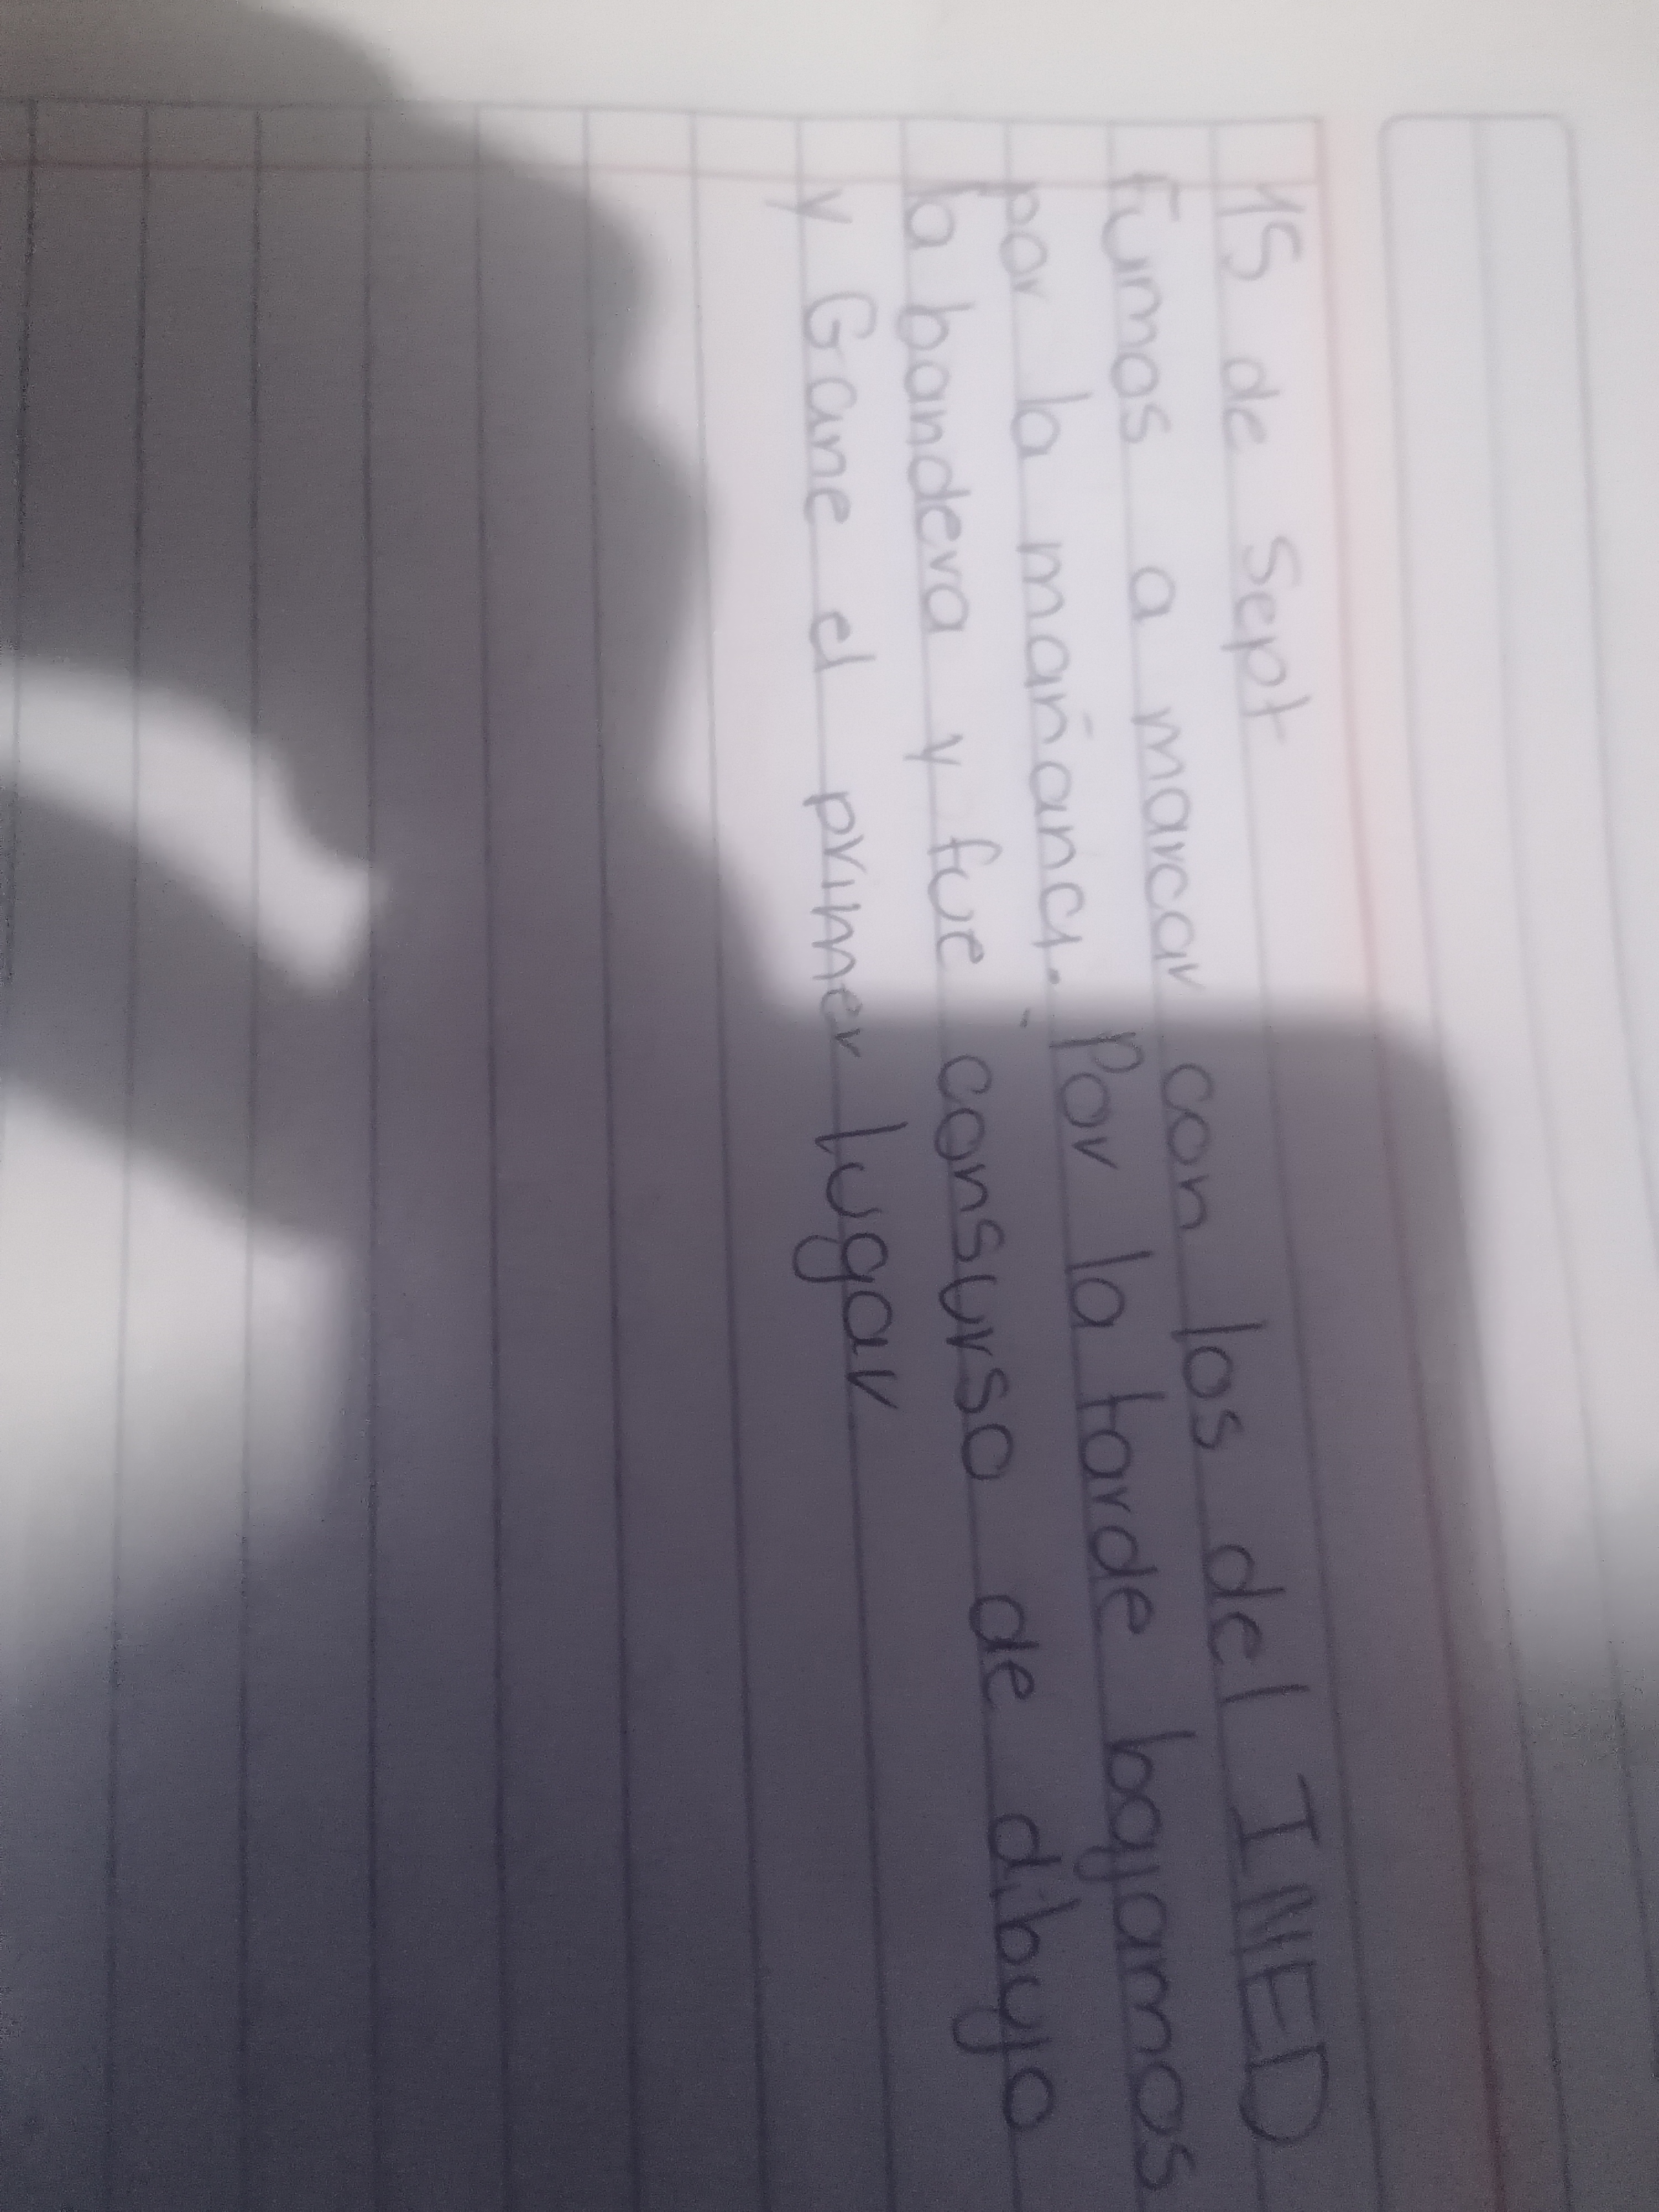 15 de Sept
Fuimos a marcar con los del INED
por la mañana. Por la tarde bajamos
la bandera y fue consurso de dibujo
y Gane el primer lugar